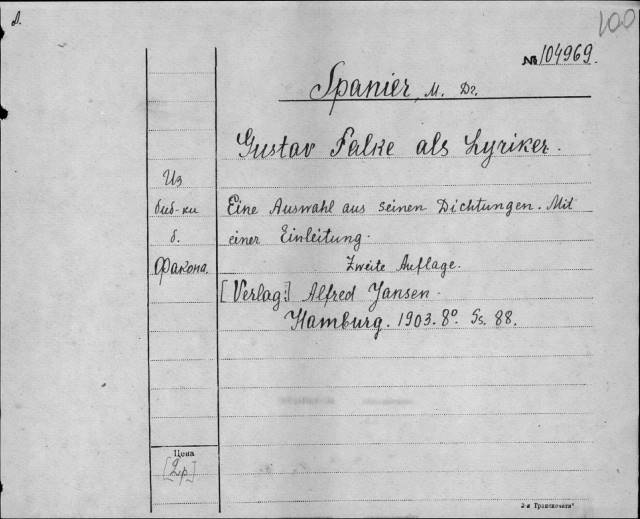 100
№ 104969.
Spanier, M. Dr.
Gustav Falke als Lyriker.
Из
биб-ки
б.
Факона.
Eine Auswahl aus seinen Dichtungen. Mit
einer Einleitung.
Zweite Auflage.
[Verlag:] Alfred Jansen.
Hamburg. 1903. 8° Ss. 88.
Цена
[2р]
2-я Транспечати"